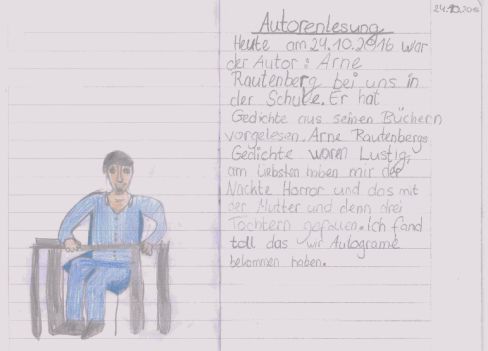 24.10.2016
Autorenlesung
Heute am 24.10.2016 war
der Autor: Arne
Rautenberg bei uns in
der Schule. Er hat
Gedichte aus seinen Büchern
vorgelesen. Arne Rautenbergs
Gedichte waren Lustig,
am Liebsten haben mir der
Nackte Horror und das mit
der Mutter und denn drei
Töchtern gefallen. Ich fand
toll das wir Autograme
bekommen haben.